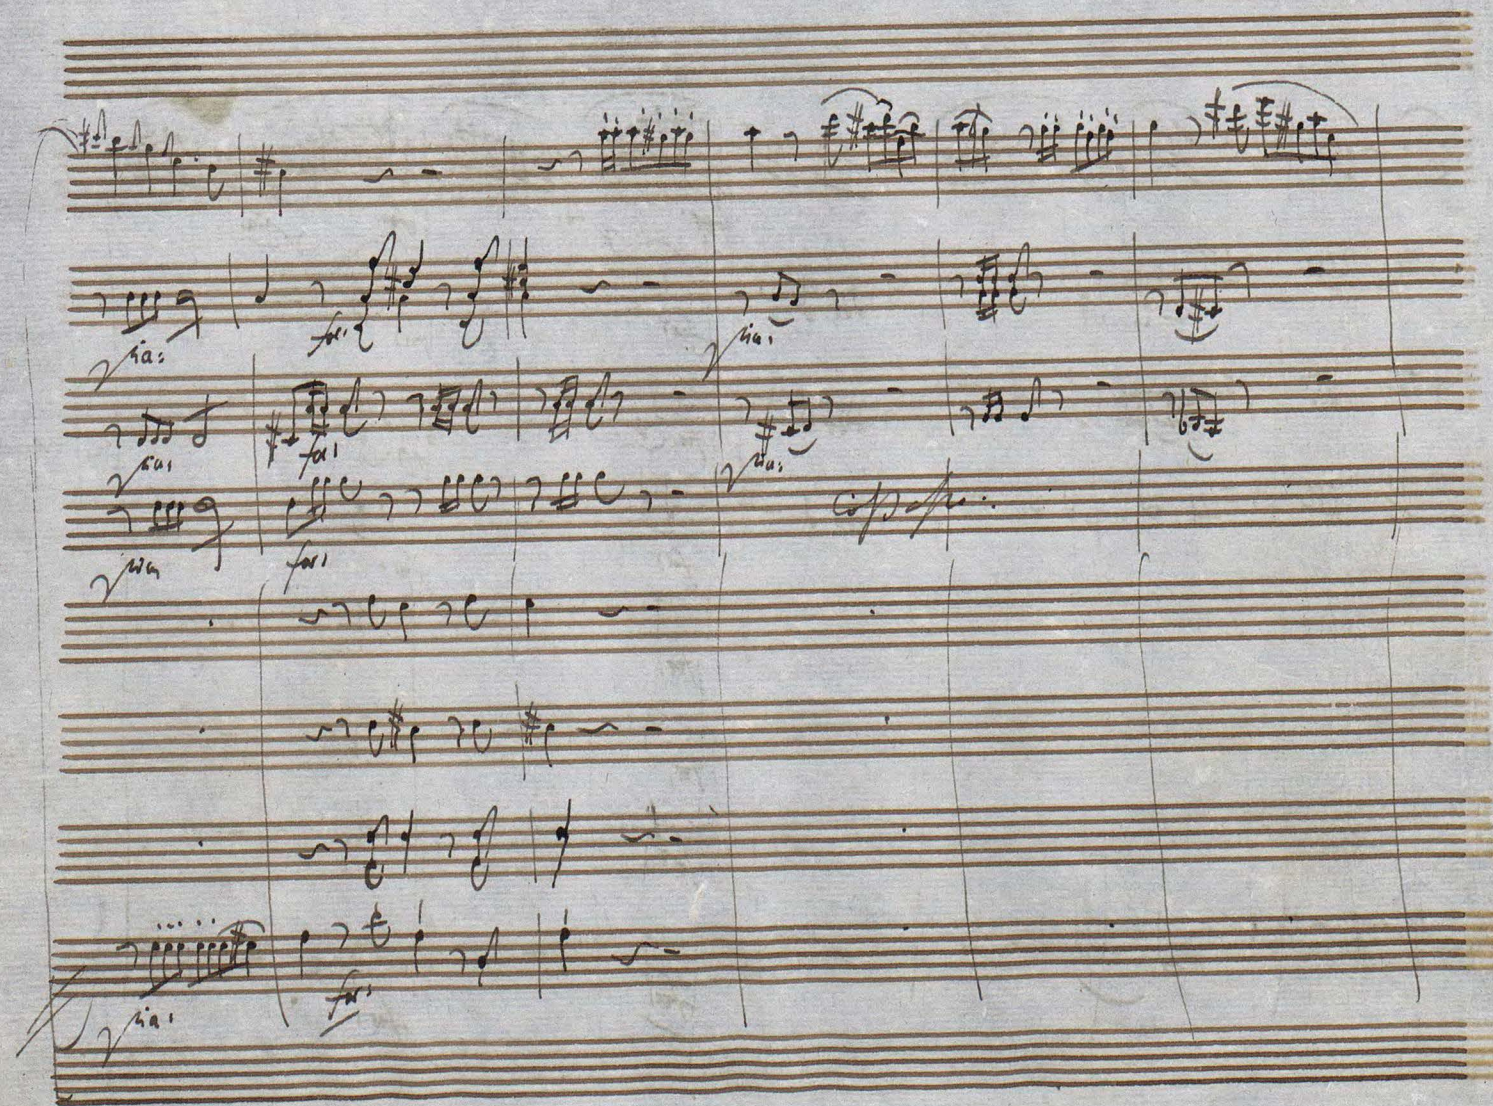 pia: for: pia:
pia: for: pia:
pia for:
pia: for: